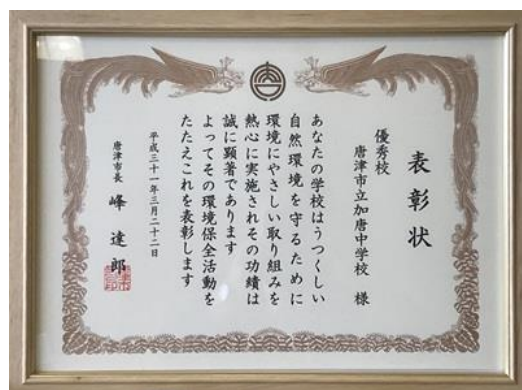 表彰状
優秀校
唐津市立加唐中学校 様
あなたの学校はうつくしい
自然環境を守るために
環境にやさしい取り組みを
熱心に実施されその功績は
誠に顕著であります
よってその環境保全活動を
たたえこれを表彰します
平成三十一年三月二十二日
唐津市長 峰達郎